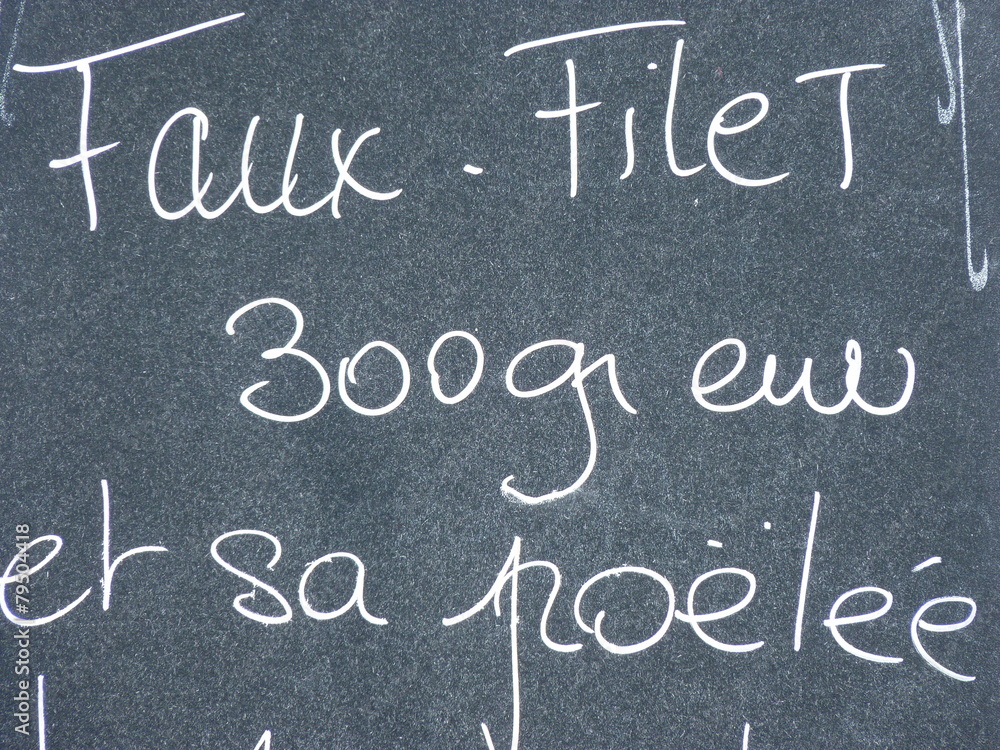 Faux-Filet
300gr env
et sa poëlée
Adobe Stock | #79504418